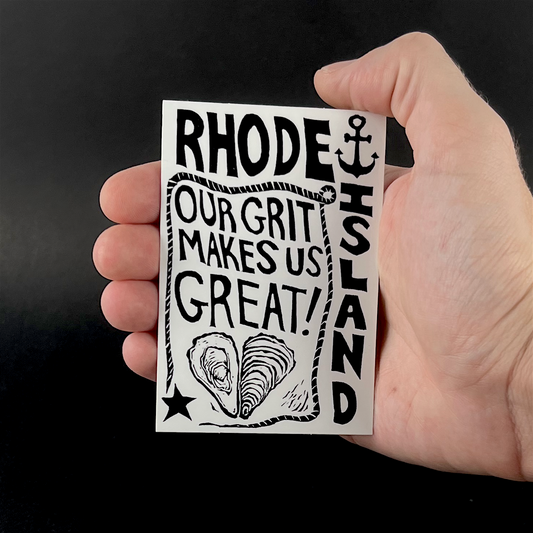 RHODE
ISLAND
OUR GRIT
MAKES US
GREAT!